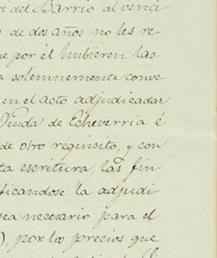 del Barrio al venci
o de dos años no les re-
ue por él hubieren las
solemnemente conve
en el acto adjudicadas
Viuda de Echeverria é
de otro requisito, y con
ta escritura, las fin
ficandose la adjudi
sea necesario para el
), por los precios que